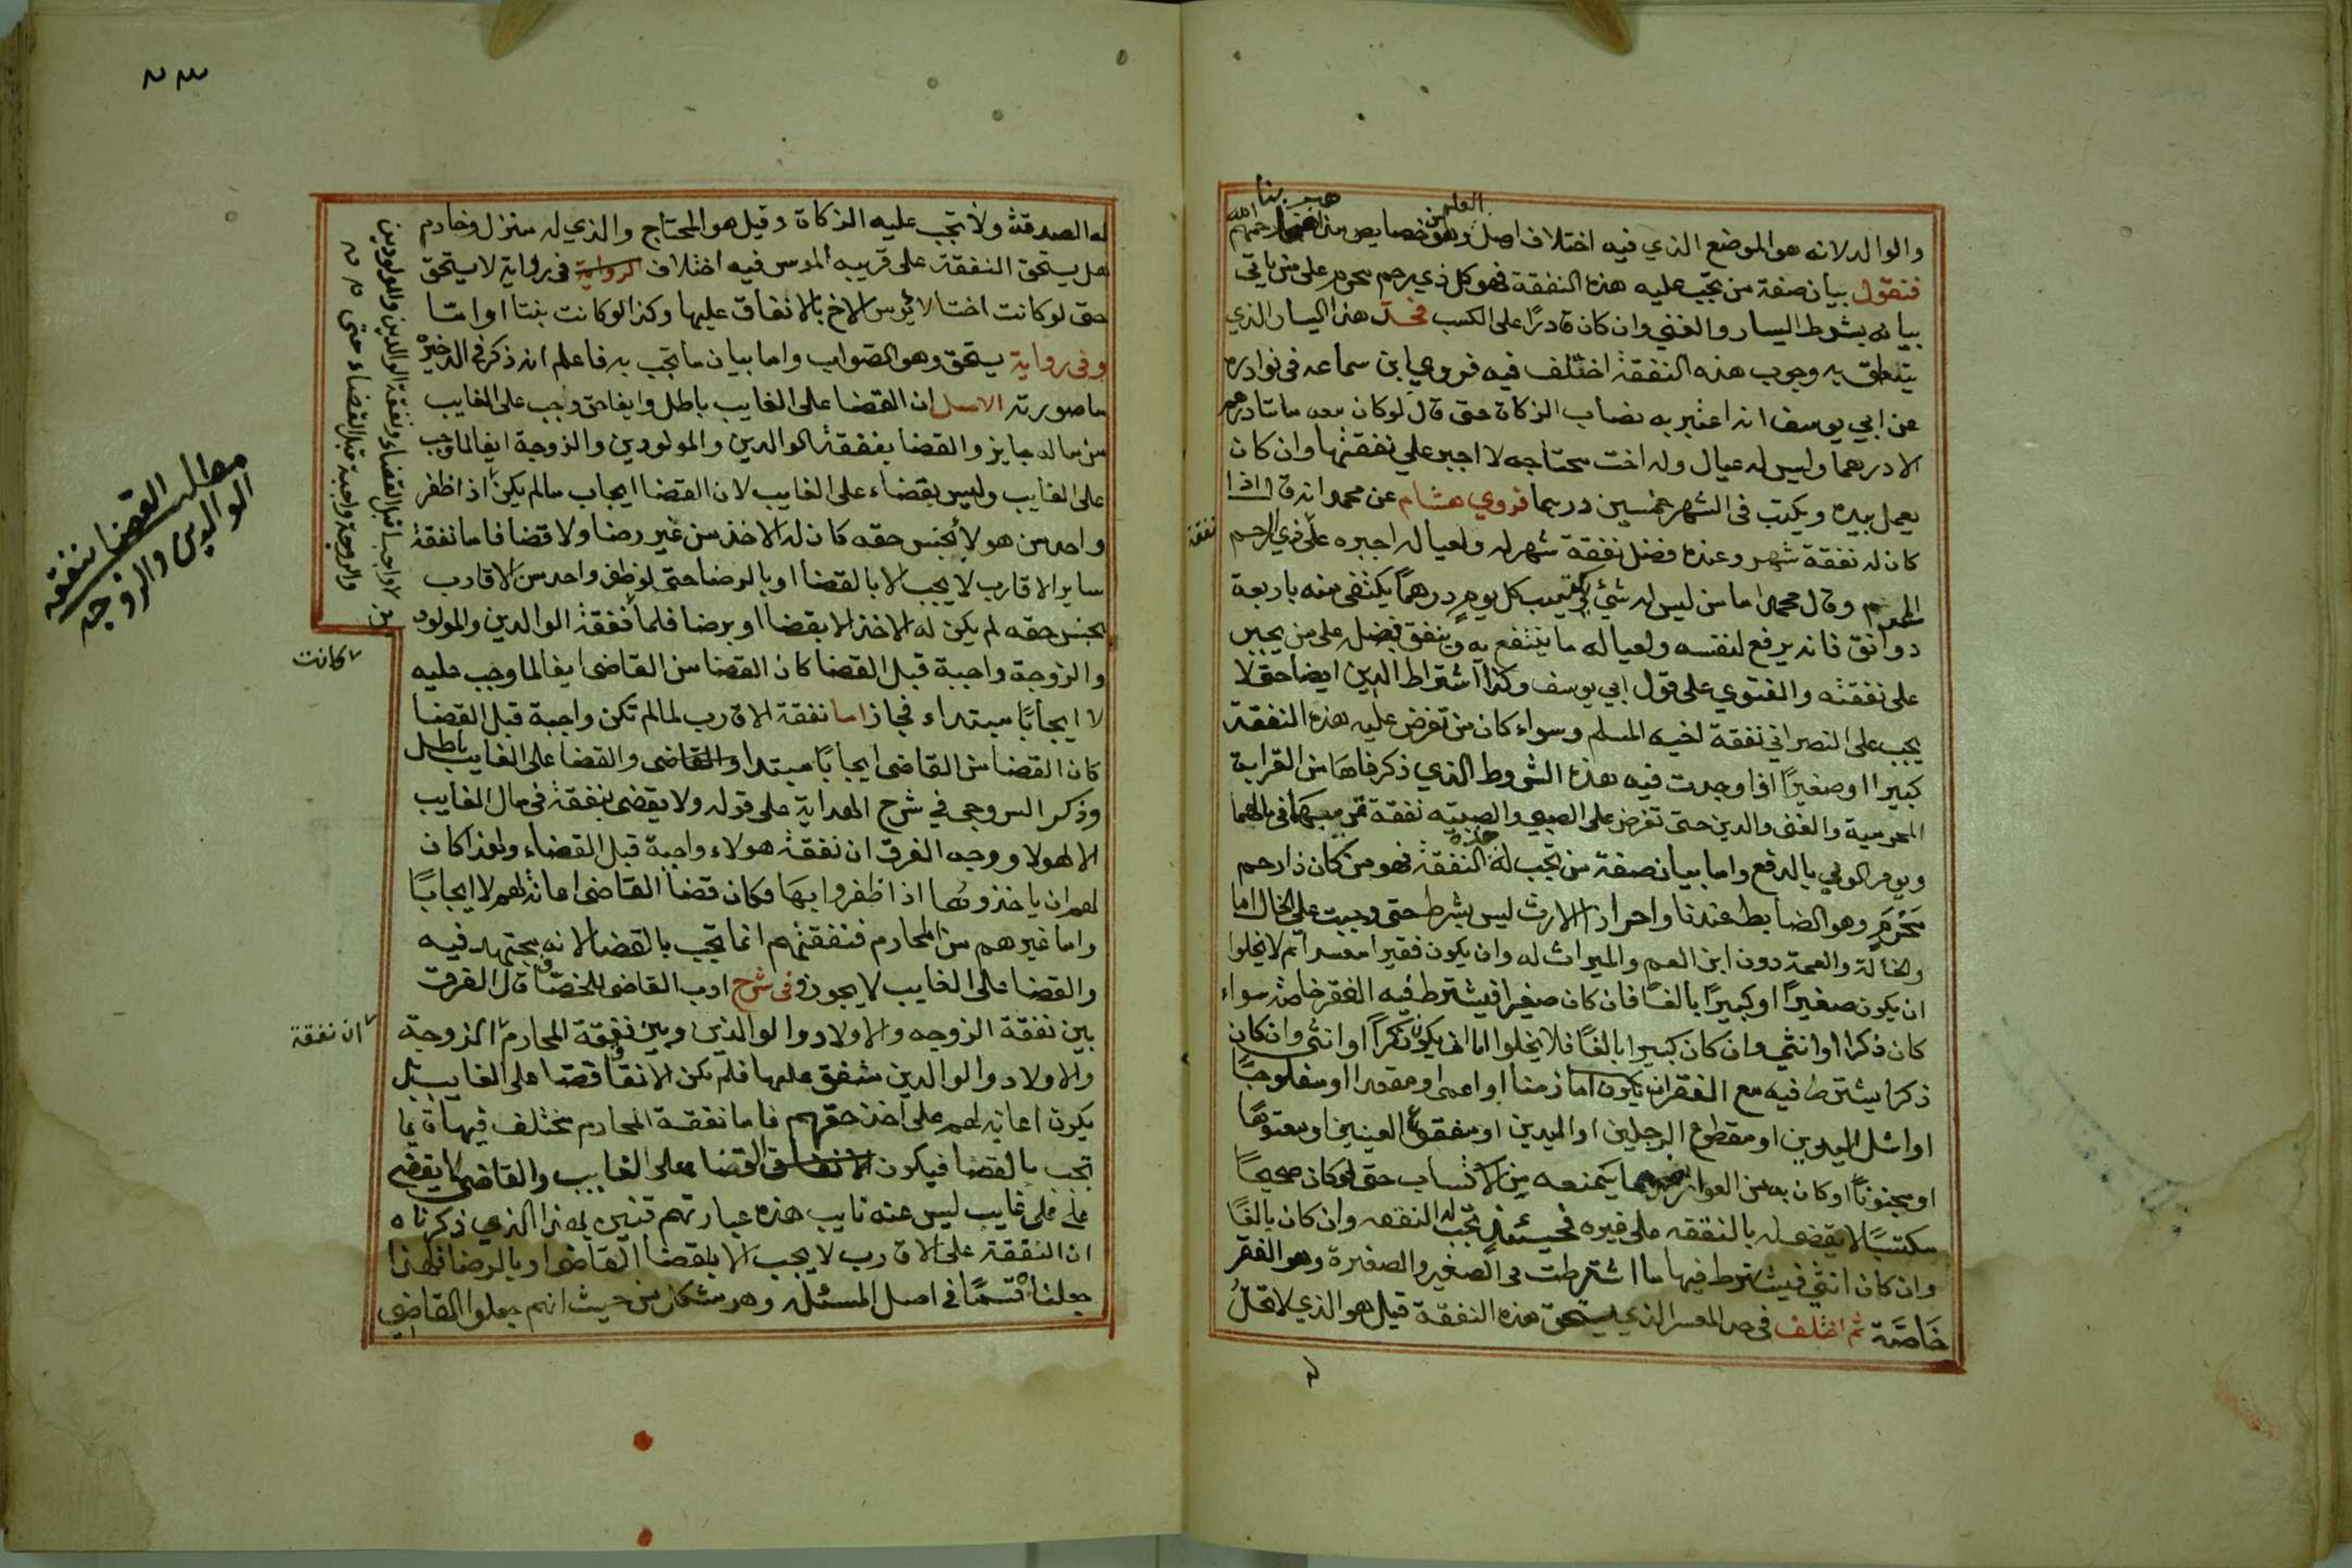 والوالد لانه هو الموضع الذي فيه اختلاف اصل وهو من خصايص مذهبنا رحمهم الله
فنقول بيان صفة من تجب عليه هذه النفقة فهو كل ذي رحم محرم على من ياتي
بيانه بشرط اليسار والغني وان كان قادرًا على الكسب فحد هذا اليسار الذي
يتعلق به وجوب هذه النفقة اختلف فيه فروي ابن سماعه في نوادره
عن ابي يوسف انه اعتبر به نصاب الزكاة حتى قال لو كان معه مائتا درهم
الا درهما وليس له عيال وله اخت محتاجه لا اجبر علي نفقتها وان كان
يعمل بيده ويكتب في الشهر خمسين درهما فروي هشام عن محمد انه قال اذا
كان له نفقة شهر وعنده فضل نفقة شهر له ولعياله اجبره على ذي الرحم
نفقة
المحرم وقال محمد اما من ليس له شئ يكتسب كل يوم درهمًا يكتفي منه باربعة
دوانق فانه يرفع لنفسه ولعياله ما ينتفع به وينفق فضله على من يجبر
على نفقته والفتوي على قول ابي يوسف وكذا اشتراط الدين ايضا حتى لا
يجب على النصراني نفقة اخيه المسلم وسواء كان من تفرض عليه هذه النفقة
كبيرا او صغيرًا اذا وجدت فيه هذه الشروط الذي ذكرناها من القرابة
المحرمية والغني والدين حتى تفرض على الصبي والصبيه نفقة قريبهما في مالهما
ويومر الولي بالدفع واما بيان صفة من تجب له هذه النفقة فهو من كان ذا رحم
مَحْرَم وهو الضابط عندنا واحراز الارث ليس بشرط حتى وجبت علي الخال اما
والخالة والعمة دون ابن العم والميراث له وان يكون فقيرا معسرا ثم لا يخلوا
ان يكون صغيرًا او كبيرًا بالغًا فان كان صغيرا فيشترط فيه الفقر خاصة سواء
كان ذكرا او انثي وان كان كبيرا بالغًا فلا يخلوا اما ان يكون ذكرًا او انثي وان كان
ذكرا يشترط فيه مع الفقر ان يكون اما زمنا او اعمي او مقعدا او مفلوجًا
او اشل اليدين او مقطوع الرجلين او اليدين او مفقوع العينين او معتوهًا
او مجنونًا او كان به من العوارض ما يمنعه من الاكتساب حتى لو كان صحيحًا
مكتسبًا لا يقضي له بالنفقه على غيره فحينئذ تجب له النفقه وان كان بالغًا
وان كان انثي فيشترط فيها ما اشترطت في الصغير والصغيرة وهو الفقر
خَاصَّة ثم اختلف في حد المعسر الذي يستحق هذه النفقة قيل هو الذي لا تحلُّ
له
له الصدقة ولا تجب عليه الزكاة وقيل هو المحتاج والذي له منزل وخادم
هل يستحق النفقة على قريبه الموسر فيه اختلاف الرواية في رواية لا يستحق
حتى لو كانت اختا لا يؤمر الاخ بالانفاق عليها وكذا لو كانت بنتا او امّا
وفي رواية يستحق وهو الصواب واما بيان ما تجب به فاعلم انه ذكر في الدخيره
ما صورته الاصل ان القضا على الغايب باطل وايفا حق وجب على الغايب
من ماله جايز والقضا بنفقة الوالدين والمولودين والزوجة ايفا لما وجب
على الغايب وليس بقضاء على الغايب لان القضا ايجاب ما لم يكن اذا ظفر
واحد من هولا بجنس حقه كان له الاخذ من غير رضا ولا قضا فاما نفقة
ساير الاقارب لا يجب الا بالقضا او بالرضا حتى لو ظفر واحد من الاقارب
بجنس حقه لم يكن له الاخذ الا بقضا او برضا فلما نفقة الوالدين والمولود
ين
والزوجة واجبة قبل القضا كان القضا من القاضي ايفا لما وجب عليه
كانت
لا ايجابًا مبتداء فجاز اما نفقة الاقارب لما لم تكن واجبة قبل القضا
كان القضا من القاضي ايجابًا مبتدا والقاضي والقضا على الغايب باطل
وذكر السروجي في شرح الهداية على قوله ولا يقضي بنفقة في مال الغايب
الا لهولا ووجه الفرق ان نفقة هولاء واجبة قبل القضاء ولهذا كان
لهم ان ياخذوها اذا ظفروا بها فكان قضا القاضي اعانة لهم لا ايجابًا
واما غيرهم من المحارم فنفقتهم انما تجب بالقضا لانه مجتهد فيه
والقضا على الغايب لا يجوز وفي شرح ادب القاضي للخصاف قال الفرق
بين نفقة الزوجه والاولاد والوالدين وبين نفقة المحارم الزوجة
ان نفقة
والاولاد والوالدين متفق عليها فلم يكن الانفاق قضا على الغايب بل
يكون اعانة لهم على اخذ حقهم فاما نفقة المحارم مختلف فيها فانما
تجب بالقضا فيكون الانفاق القضا على الغايب والقاضي لا يقضي
على غايب ليس عنه نايب هذه عبارتهم فتبين لهذا الذي ذكرناه
ان النفقة على الاقارب لا يجب الا بقضا القاضي او بالرضا فلهذا
جعلناه قسمًا في اصل المسئله وهو مشكل من حيث انهم جعلوا القاضي
واجبا قبل القضاء ونفقة الوالدين والمولودين
والزوجة واجبة قبل القضاء حتى
مطلب القضا بنفقه
الوالدين والزوجه